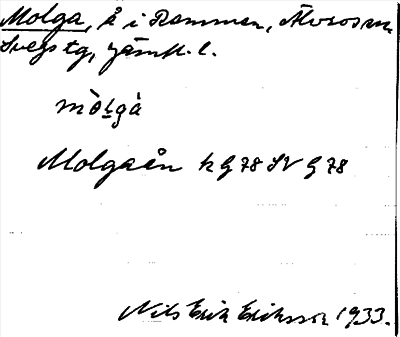 Molga, å i Remmen, Älvros sn.
Svegs tg, Jämtl. l.
mòl̠gà
Molgaån k G 78 SV G 78
Nils Erik Eriksson 1933.